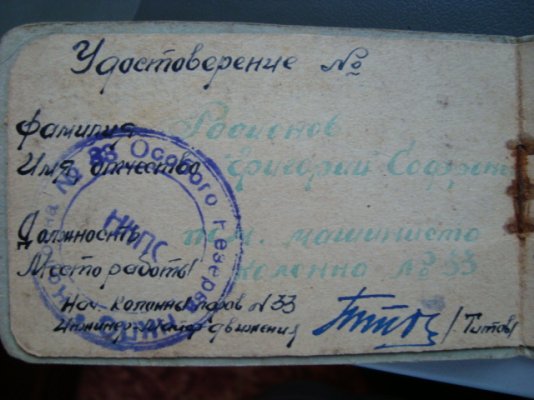 Удостоверение №
Фамилия Родионов
Имя, отчество Григорий
Должность пом. машиниста
Место работы колонна № 33
Нач. колонны паров. N 33
Инженер движения
/Титов/
Колонна № 33 Особого Резерва
НКПС